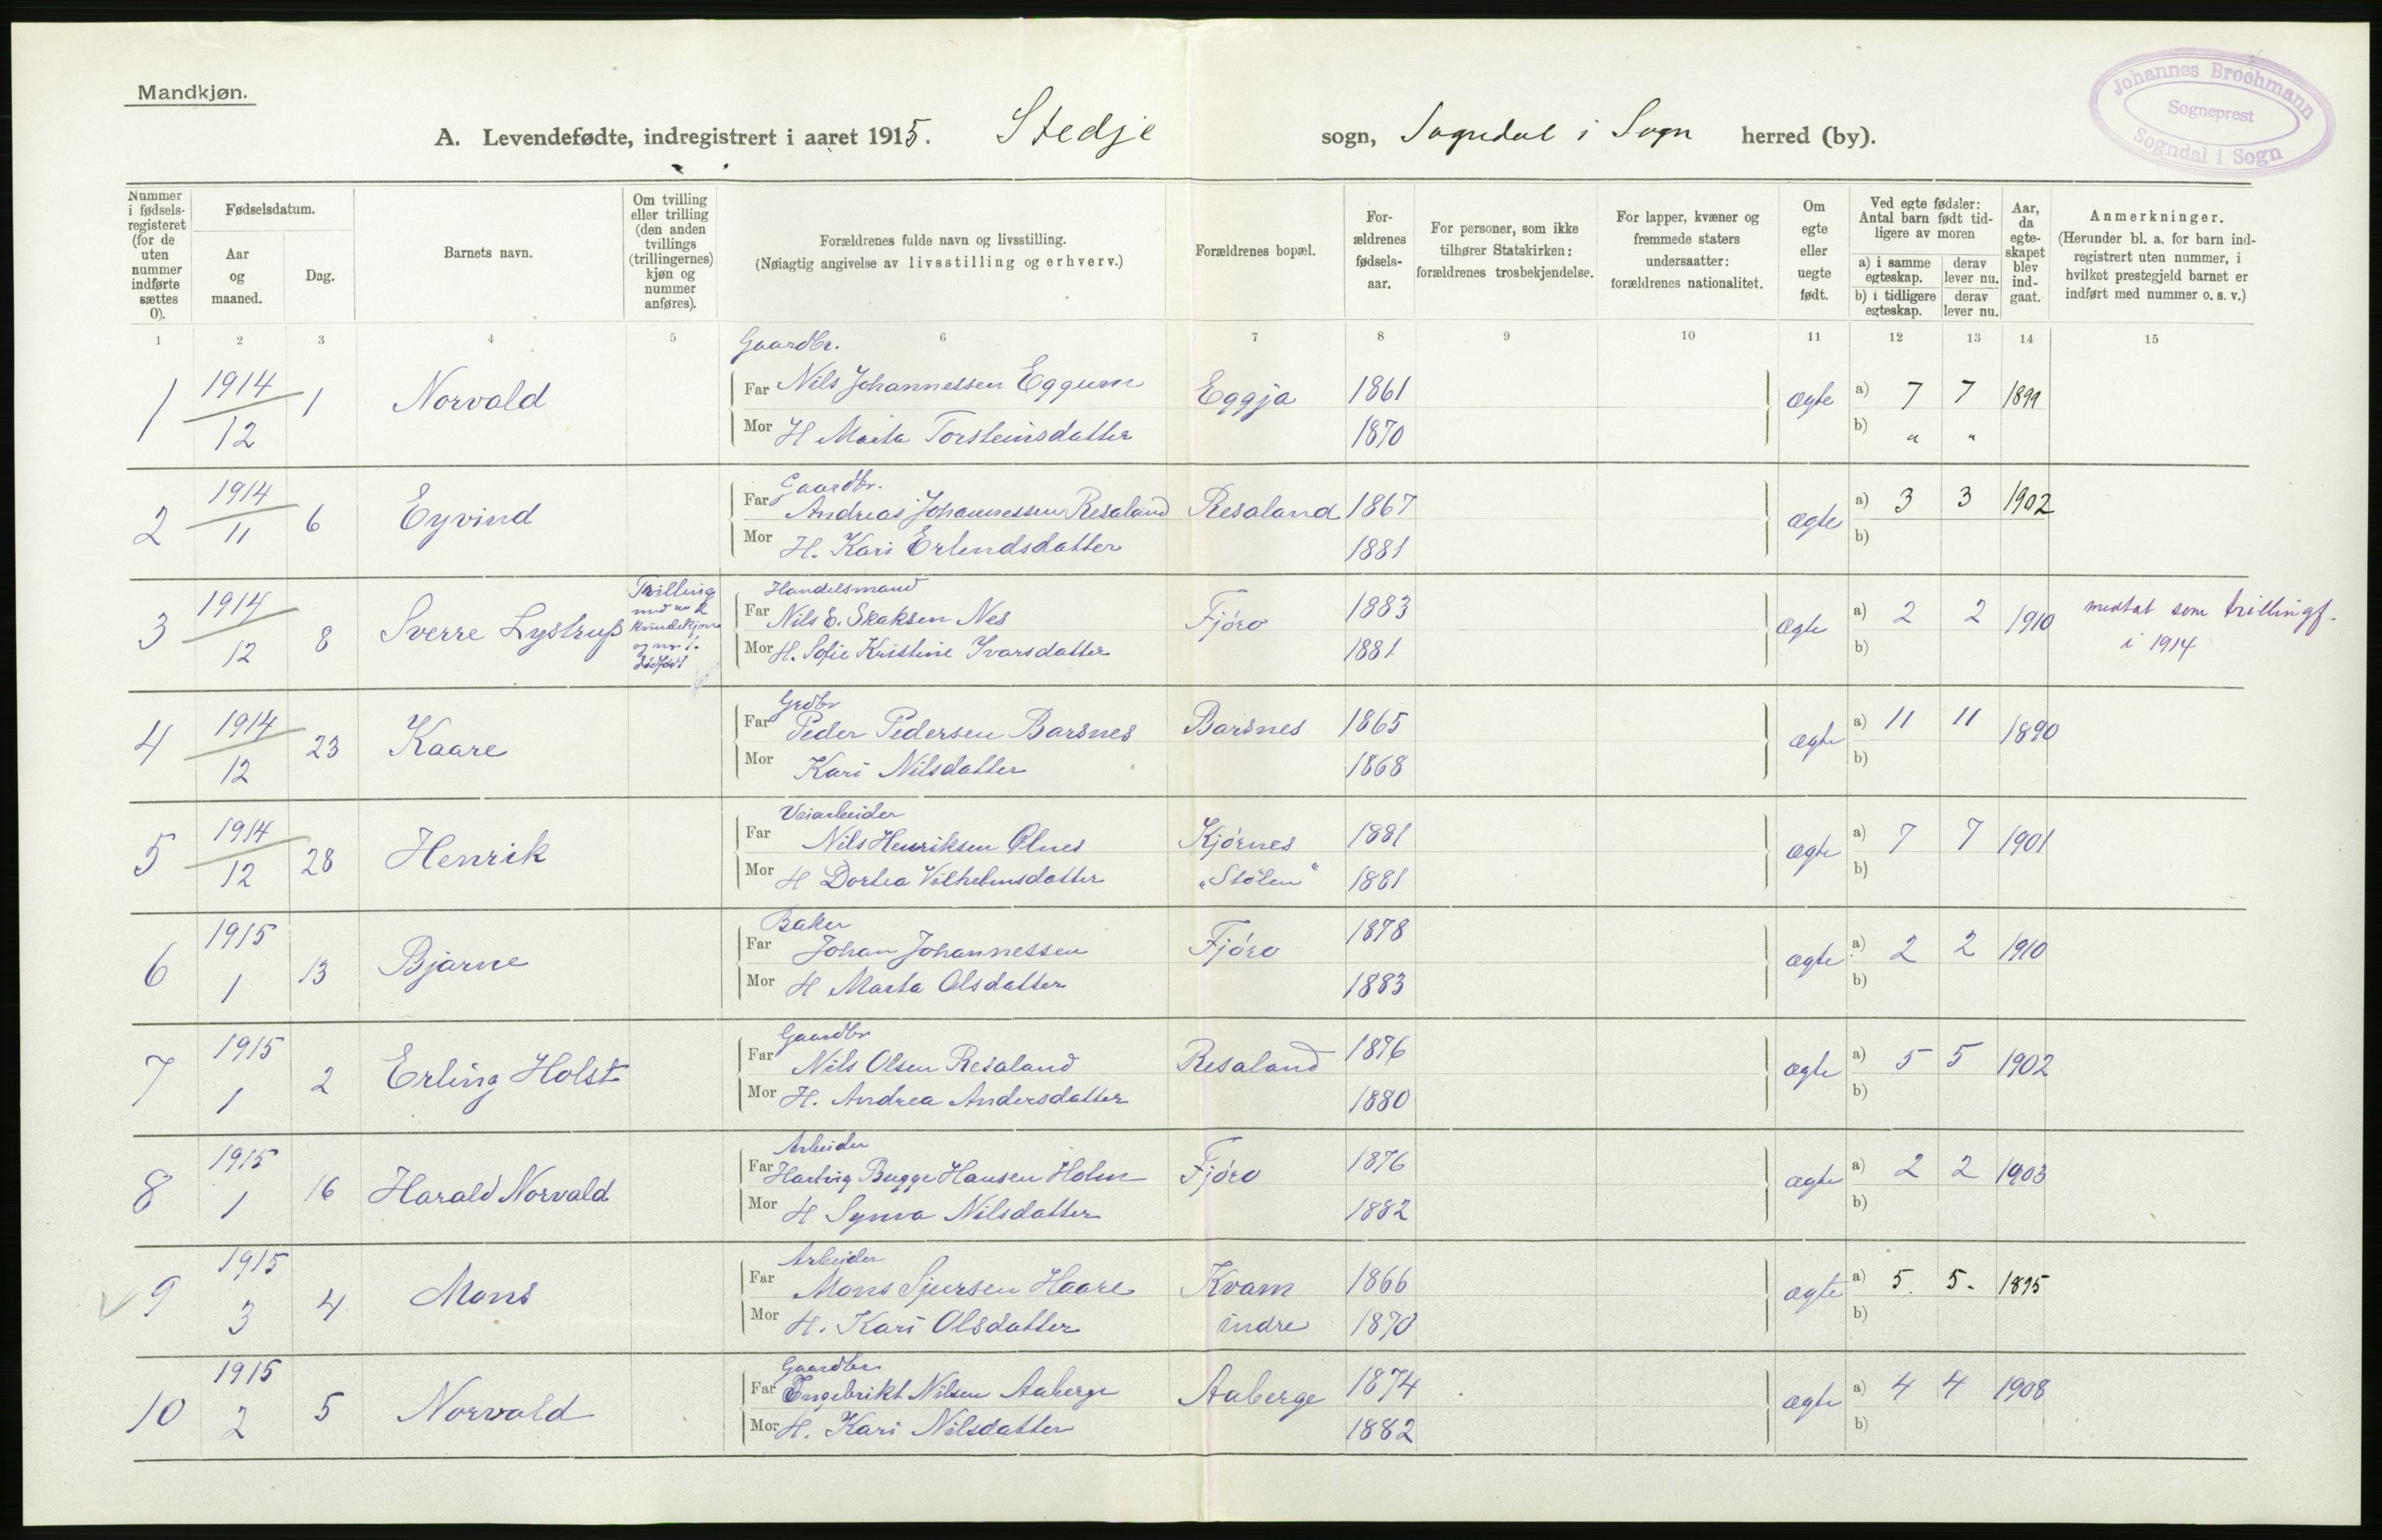 Mandkjøn.
A. Levendefødte, indregistrert i aaret 1915. Stedje sogn, Sogndal i Sogn herred (by).
Johannes Brochmann
Sogneprest
Sogndal i Sogn
Nummer i fødselsregisteret (for de uten nummer indførte sættes 0).
Fødselsdatum.
Aar og maaned.
Dag.
Barnets navn.
Om tvilling eller trilling (den anden tvillings (trillingernes) kjøn og nummer anføres).
Forældrenes fulde navn og livsstilling.
(Nøiagtig angivelse av livsstilling og erhverv.)
Forældrenes bopæl.
Forældrenes fødselsaar.
For personer, som ikke tilhører Statskirken: forældrenes trosbekjendelse.
For lapper, kvæner og fremmede staters undersaatter: forældrenes nationalitet.
Om egte eller uegte født.
Ved egte fødsler: Antal barn født tidligere av moren
a) i samme egteskap. derav lever nu.
b) i tidligere egteskap. derav lever nu.
Aar, da egteskapet blev indgaat.
Anmerkninger.
(Herunder bl. a. for barn indregistrert uten nummer, i hvilket prestegjeld barnet er indført med nummer o. s. v.)
1 2 3 4 5 6 7 8 9 10 11 12 13 14 15
Gaardbr.
1 1914 12 1 Norvald Far Nils Johannessen Eggum Eggja 1861 ægte a) 7 7 1899
Mor H Marta Torsteinsdatter 1870 b) " "
Gaardbr.
2 1914 11 6 Eyvind Far Andreas Johannessen Resaland Resaland 1867 ægte a) 3 3 1902
Mor H. Kari Erlendsdatter 1881 b)
Handelsmand
3 1914 12 8 Sverre Lystrup Trilling med no 2 kvindekjøn og nr. 1. dødfødt Far Nils E. Skaksen Nes Fjøro 1883 ægte a) 2 2 1910 medtat som trillingf. i 1914
Mor H. Sofie Kristine Ivarsdatter 1881 b)
Grdbr
4 1914 12 23 Kaare Far Peder Pedersen Barsnes Barsnes 1865 ægte a) 11 11 1890
Mor Kari Nilsdatter 1868 b)
Veiarbeider
5 1914 12 28 Henrik Far Nils Henriksen Ølnes Kjørnes 1881 ægte a) 7 7 1901
Mor H Dortea Vilhelmsdatter "Stølen" 1881 b)
Baker
6 1915 1 13 Bjarne Far Johan Johannessen Fjøro 1878 ægte a) 2 2 1910
Mor H Marta Olsdatter 1883 b)
Gaardbr
7 1915 1 2 Erling Holst Far Nils Olsen Resaland Resaland 1876 ægte a) 5 5 1902
Mor H. Andrea Andersdatter 1880 b)
Arbeider
8 1915 1 16 Harald Norvald Far Hartvig Bugge Hansen Holm Fjøro 1876 ægte a) 2 2 1903
Mor H Synva Nilsdatter 1882 b)
Arbeider
9 1915 3 4 Mons Far Mons Sjursen Haare Kvam 1866 ægte a) 5. 5- 1895
Mor H. Kari Olsdatter indre 1870 b)
Gaardbr
10 1915 2 5 Norvald Far Engebrikt Nilsen Aaberge Aaberge 1874 ægte a) 4 4 1908
Mor H. Kari Nilsdatter 1882 b)